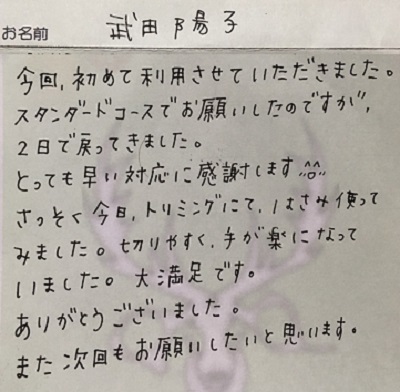 お名前 武田陽子
今回、初めて利用させていただきました。
スタンダードコースでお願いしたのですが、
2日で戻ってきました。
とっても早い対応に感謝します^^
さっそく今日、トリミングにて、はさみ使って
みました。切りやすく、手が楽になって
いました。大満足です。
ありがとうございました。
また次回もお願いしたいと思います。